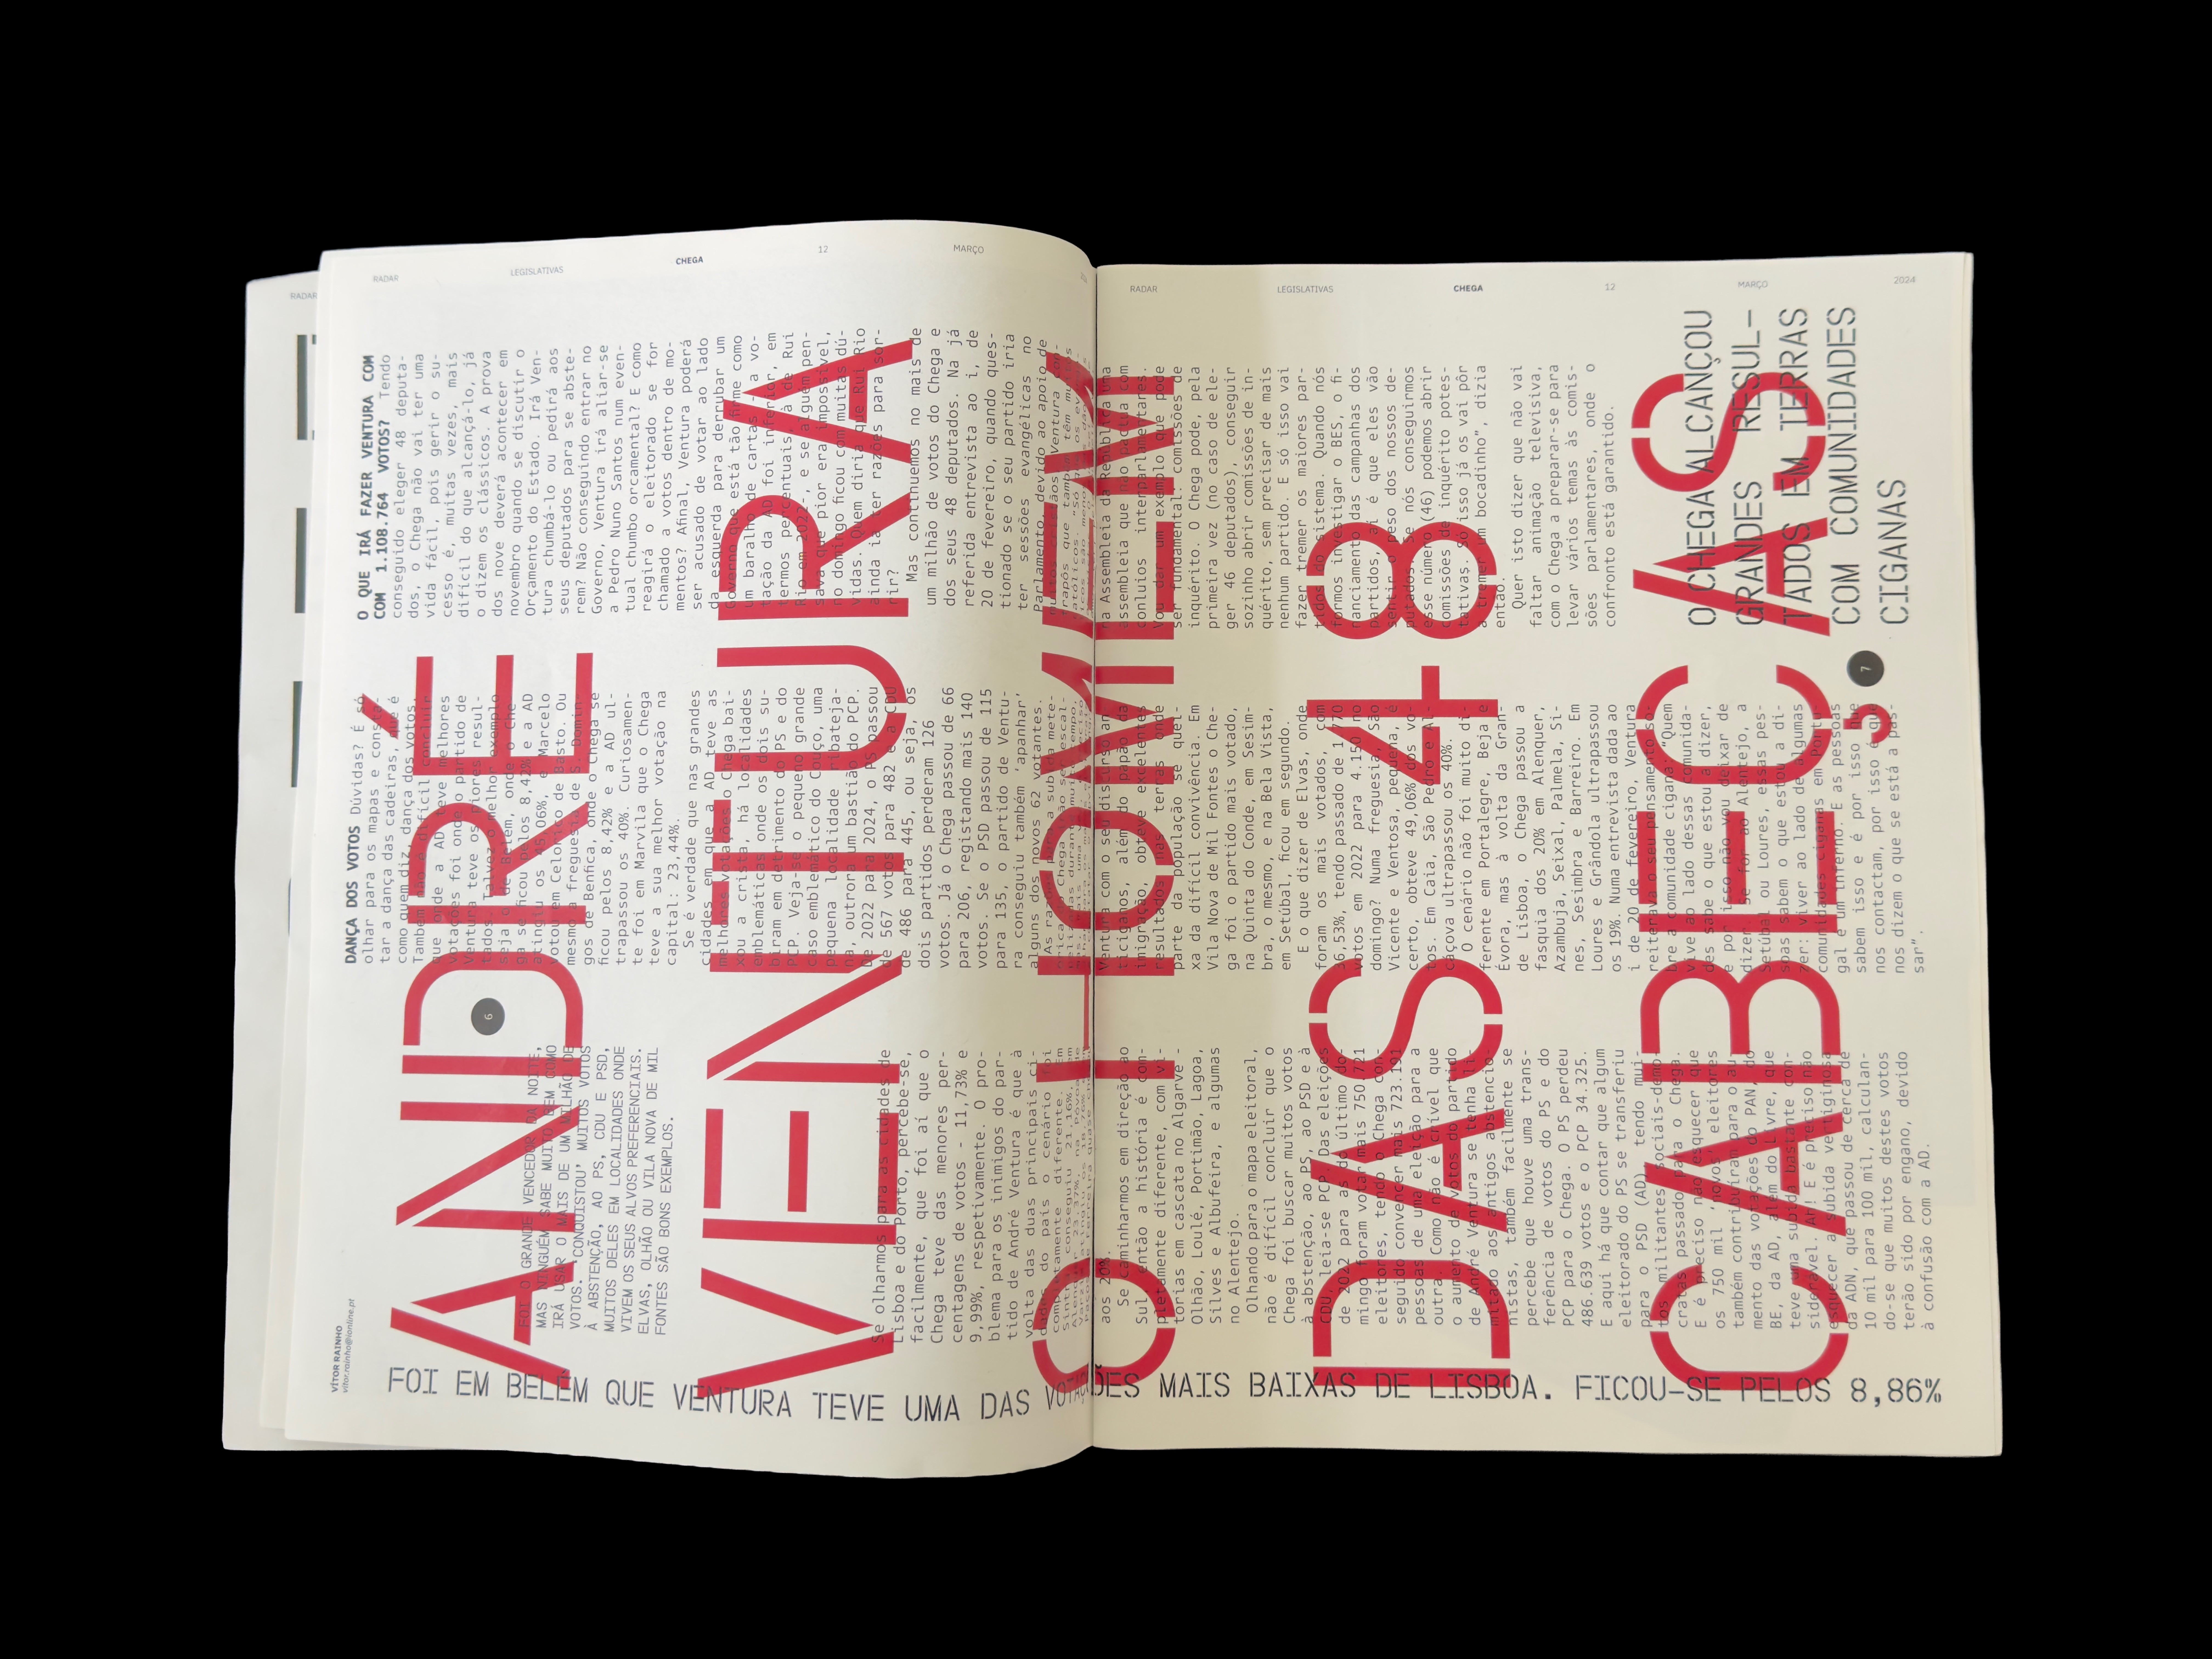 RADAR
LEGISLATIVAS
CHEGA
12
MARÇO
RADAR
LEGISLATIVAS
CHEGA
12
MARÇO
2024
RADAR
VÍTOR RAINHO
vitor.rainho@ionline.pt
ANDRÉ
VENTURA
O HOMEM
DAS 48
CABEÇAS
6
7
FOI O GRANDE VENCEDOR DA NOITE,
MAS NINGUÉM SABE MUITO BEM COMO
IRÁ USAR O MAIS DE UM MILHÃO DE
VOTOS. 'CONQUISTOU' MUITOS VOTOS
À ABSTENÇÃO, AO PS, CDU E PSD,
MUITOS DELES EM LOCALIDADES ONDE
VIVEM OS SEUS ALVOS PREFERENCIAIS.
ELVAS, OLHÃO OU VILA NOVA DE MIL
FONTES SÃO BONS EXEMPLOS.
Se olharmos para as cidades de
Lisboa e do Porto, percebe-se,
facilmente, que foi aí que o
Chega teve das menores per-
centagens de votos - 11,73% e
9,99%, respetivamente. O pro-
blema para os inimigos do par-
tido de André Ventura é que à
volta das duas principais ci-
dades do país o cenário foi
completamente diferente. Em
Sintra conseguiu 21,16%
aos 20%.
Se caminharmos em direção ao
Sul, então a história é com-
pletamente diferente, com vi-
tórias em cascata no Algarve -
Olhão, Loulé, Portimão, Lagoa,
Silves e Albufeira, e algumas
no Alentejo.
Olhando para o mapa eleitoral,
não é difícil concluir que o
Chega foi buscar muitos votos
à abstenção, ao PS, ao PSD e à
CDU, leia-se PCP. Das eleições
de 2022 para as do último do-
mingo foram votar mais 750 721
eleitores, tendo o Chega con-
seguido convencer mais 723.191
pessoas de uma eleição para a
outra. Como não é crível que
o aumento de votos do partido
de André Ventura se tenha li-
mitado aos antigos abstencio-
nistas, também facilmente se
percebe que houve uma trans-
ferência de votos do PS e do
PCP para o Chega. O PS perdeu
486.639 votos e o PCP 34.325.
E aqui há que contar que algum
eleitorado do PS se transferiu
para o PSD (AD), tendo mui-
tos militantes sociais-demo-
cratas passado para o Chega.
E é preciso não esquecer que
os 750 mil 'novos' eleitores
também contribuíram para o au-
mento das votações do PAN, do
BE, da AD, além do Livre, que
teve uma subida bastante con-
siderável. Ah! E é preciso não
esquecer a subida vertiginosa
da ADN, que passou de cerca de
10 mil para 100 mil, calculan-
do-se que muitos destes votos
terão sido por engano, devido
à confusão com a AD.
DANÇA DOS VOTOS Dúvidas? É só
olhar para os mapas e consta-
tar a dança das cadeiras, que é
como quem diz, dança dos votos.
Também não é difícil concluir
que onde a AD teve melhores
votações foi onde o partido de
Ventura teve os piores resul-
tados. Talvez o melhor exemplo
seja o de Belém, onde o Che-
ga se ficou pelos 8,42% e a AD
atingiu os 45,06%, e Marcelo
votou em Celorico de Basto. Ou
mesmo a freguesia de S. Domin-
gos de Benfica, onde o Chega se
ficou pelos 8,42% e a AD ul-
trapassou os 40%. Curiosamen-
te foi em Marvila que o Chega
teve a sua melhor votação na
capital: 23,44%.
Se é verdade que nas grandes
cidades em que a AD teve as
melhores votações o Chega bai-
xou a crista, há localidades
emblemáticas onde os dois su-
biram em detrimento do PS e do
PCP. Veja-se o pequeno grande
caso emblemático do Couço, uma
pequena localidade ribateja-
na, outrora um bastião do PCP.
De 2022 para 2024, o PS passou
de 567 votos para 482 e a CDU
de 486 para 445, ou seja, os
dois partidos perderam 126
votos. Já o Chega passou de 66
para 206, registando mais 140
votos. Se o PSD passou de 115
para 135, o partido de Ventu-
ra conseguiu também 'apanhar'
alguns dos novos 62 votantes.
As razões para a subida mete-
Ventura com o seu discurso an-
ticiganos, além do papão da
imigração, obteve excelentes
resultados nas terras onde
parte da população se quei-
xa da difícil convivência. Em
Vila Nova de Mil Fontes o Che-
ga foi o partido mais votado,
na Quinta do Conde, em Sesim-
bra, o mesmo, e na Bela Vista,
em Setúbal, ficou em segundo.
E o que dizer de Elvas, onde
foram os mais votados, com
36,53%, tendo passado de 1.770
votos em 2022 para 4.150 no
domingo? Numa freguesia, São
Vicente e Ventosa, pequena, é
certo, obteve 49,06% dos vo-
tos. Em Caia, São Pedro e Al-
cáçova ultrapassou os 40%.
O cenário não foi muito di-
ferente em Portalegre, Beja e
Évora, mas à volta da Gran-
de Lisboa, o Chega passou a
fasquia dos 20% em Alenquer,
Azambuja, Seixal, Palmela, Si-
nes, Sesimbra e Barreiro. Em
Loures e Grândola ultrapassou
os 19%. Numa entrevista dada ao
i de 20 de fevereiro, Ventura
reiterava o seu pensamento so-
bre a comunidade cigana: "Quem
vive ao lado dessas comunida-
des sabe o que estou a dizer,
e por isso não vou deixar de
dizer. Se for ao Alentejo, a
Setúbal ou Loures, essas pes-
soas sabem o que estou a di-
zer: viver ao lado de algumas
comunidades ciganas em Portu-
gal é um inferno. E as pessoas
sabem isso e é por isso que
nos contactam, por isso é que
nos dizem o que se está a pas-
sar".
O QUE IRÁ FAZER VENTURA COM
COM 1.108.764 VOTOS? Tendo
conseguido eleger 48 deputa-
dos, o Chega não vai ter uma
vida fácil, pois gerir o su-
cesso é, muitas vezes, mais
difícil do que alcançá-lo, já
o dizem os clássicos. A prova
dos nove deverá acontecer em
novembro quando se discutir o
Orçamento do Estado. Irá Ven-
tura chumbá-lo ou pedirá aos
seus deputados para se abste-
rem? Não conseguindo entrar no
Governo, Ventura irá aliar-se
a Pedro Nuno Santos num even-
tual chumbo orçamental? E como
reagirá o eleitorado se for
chamado a votos dentro de mo-
mentos? Afinal, Ventura poderá
ser acusado de votar ao lado
da esquerda para derrubar um
Governo que está tão firme como
um baralho de cartas - a vo-
tação da AD foi inferior, em
termos percentuais, à de Rui
Rio em 2022 -, e se alguém pen-
sava que pior era impossível,
no domingo ficou com muitas dú-
vidas. Quem diria que Rui Rio
ainda ia ter razões para sor-
rir?
Mas continuemos no mais de
um milhão de votos do Chega e
dos seus 48 deputados. Na já
referida entrevista ao i, de
20 de fevereiro, quando ques-
tionado se o seu partido iria
ter sessões evangélicas no
Parlamento, devido ao apoio de
na Assembleia da República uma
assembleia que não pactua com
conluios interparlamentares.
Vou dar um exemplo que pode
ser fundamental: comissões de
inquérito. O Chega pode, pela
primeira vez (no caso de ele-
ger 46 deputados), conseguir
sozinho abrir comissões de in-
quérito, sem precisar de mais
nenhum partido. E só isso vai
fazer tremer os maiores par-
tidos do sistema. Quando nós
formos investigar o BES, o fi-
nanciamento das campanhas dos
partidos, aí é que eles vão
sentir o peso dos nossos de-
putados. Se nós conseguirmos
esse número (46) podemos abrir
comissões de inquérito potes-
tativas. Só isso já os vai pôr
a tremer um bocadinho", dizia
então.
Quer isto dizer que não vai
faltar animação televisiva,
com o Chega a preparar-se para
levar vários temas às comis-
sões parlamentares, onde o
confronto está garantido.
O CHEGA ALCANÇOU
GRANDES RESUL-
TADOS EM TERRAS
COM COMUNIDADES
CIGANAS
FOI EM BELÉM QUE VENTURA TEVE UMA DAS VOTAÇÕES MAIS BAIXAS DE LISBOA. FICOU-SE PELOS 8,86%